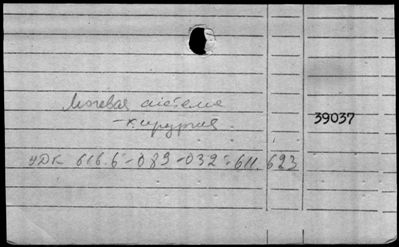 Мочевая система
- хирургия.
39037
УДК 616.6-089-032:611.623